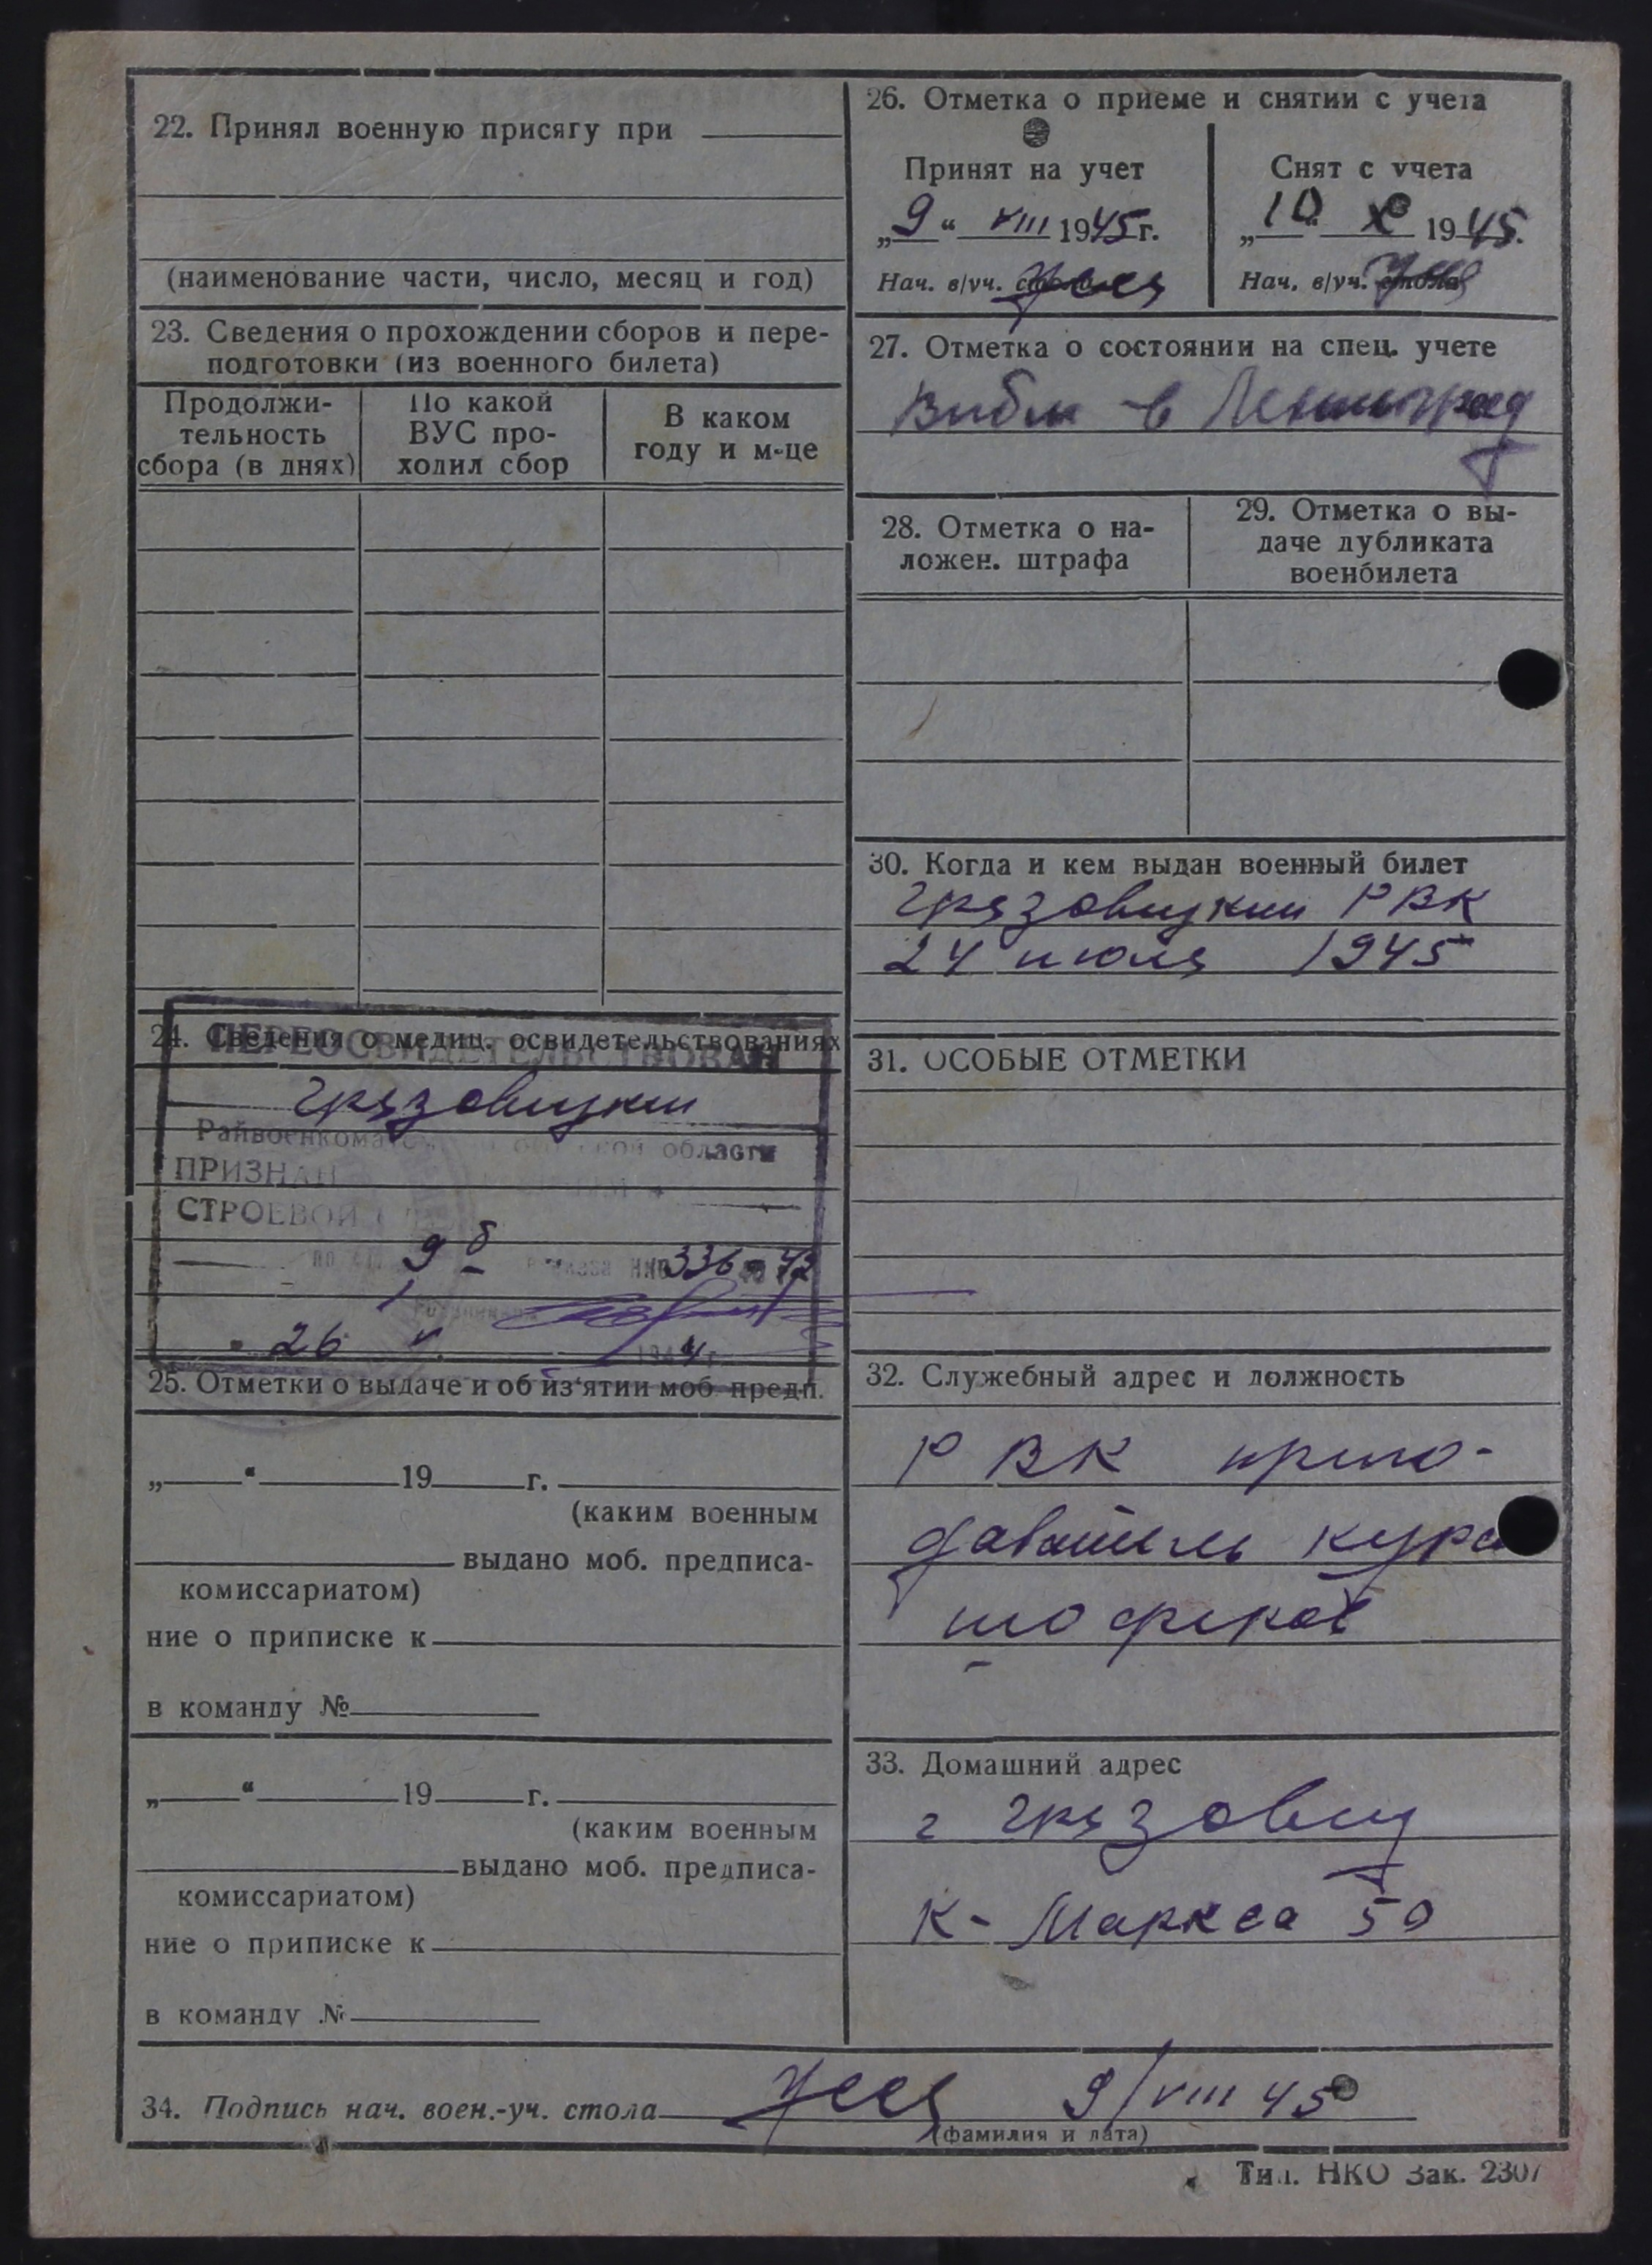 22. Принял военную присягу при
(наименование части, число, месяц и год)
23. Сведения о прохождении сборов и пере-
подготовки (из военного билета)
Продолжи-
тельность
сбора (в днях)
По какой
ВУС про-
ходил сбор
В каком
году и м-це
24. Сведения о медиц. освидетельствованиях
ПЕРЕОСВИДЕТЕЛЬСТВОВАН
Грязовецким
Райвоенкомат области
ПРИЗНАН
СТРОЕВОЙ
9 б НКО 336 42
26 1944 г.
25. Отметки о выдаче и об из'ятии моб. предп.
„ “ 19 г.
(каким военным
выдано моб. предписа-
комиссариатом)
ние о приписке к
в команду №
„ “ 19 г.
(каким военным
выдано моб. предписа-
комиссариатом)
ние о приписке к
в команду №
26. Отметка о приеме и снятии с учета
Принят на учет
„9“ VIII 1945 г.
Нач. в/уч. стола
Снят с учета
„10“ X 1945.
Нач. в/уч. стола
27. Отметка о состоянии на спец. учете
Выбыл в Ленинград
28. Отметка о на-
ложен. штрафа
29. Отметка о вы-
даче дубликата
военбилета
30. Когда и кем выдан военный билет
Грязовецким РВК
24 июля 1945
31. ОСОБЫЕ ОТМЕТКИ
32. Служебный адрес и должность
РВК препо-
даватель курс
шоферов
33. Домашний адрес
г Грязовец
К-Маркса 50
34. Подпись нач. воен.-уч. стола 9/VIII 45
(фамилия и дата)
Тип. НКО Зак. 2307